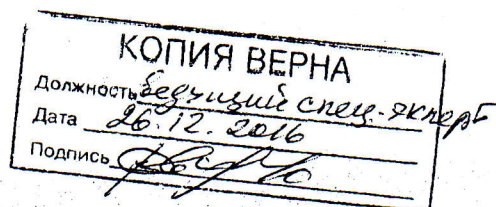 КОПИЯ ВЕРНА
Должность ведущий спец.-эксперт
Дата 26.12.2016
Подпись